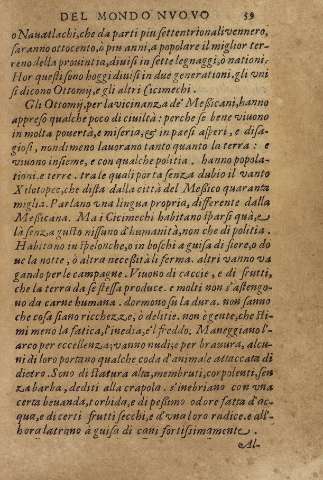 DEL MONDO NVOVO 59
o Nauatlachi, che da parti piu settentrionali vennero,
saranno ottocento, o piu anni, a popolare il miglior ter-
reno della prouintia, diuisi in sette legnaggi, o nationi.
Hor questi sono hoggi diuisi in due generationi. gli vni
si dicono Ottomij, e gli altri Cicimechi.
Gli Ottomij, per la vicinanza de' Messicani, hanno
appreso qualche poco di ciuiltà: perche se bene viuono
in molta pouertà, e miseria, & in paesi asperi, e disa-
giosi, nondimeno lauorano tanto quanto la terra: e
viuono insieme, e con qualche politia. hanno popola-
tioni, e terre. tra le quali porta senza dubio il vanto
Xilotepec, che dista dalla città del Messico quaranta
miglia. Parlano vna lingua propria, differente dalla
Messicana. Ma i Cicimechi habitano sparsi quà, e
là senza gusto nissuno d'humanità, non che di politia.
Habitano in spelonche, o in boschi a guisa di fiere, o do
ue la notte, ò altra necessità li ferma. altri vanno va
gando per le campagne. Viuono di caccie, e di frutti,
che la terra da se stessa produce. e molti non s'astengo-
no da carne humana. dormono su la dura. non sanno
che cosa siano ricchezze, ò delitie. non è gente, che sti-
mi meno la fatica, l'inedia, e'l freddo. Maneggiano l'-
arco per eccellenza; vanno nudi; e per brauura, alcu-
ni di loro portano qualche coda d'animale attaccata di
dietro. Sono di statura alta, membruti, corpolenti, sen
za barba, dediti alla crapola. s'inebriano con vna
certa beuanda, torbida, e di pessimo odore fatta d'ac-
qua, e di certi frutti secchi, e d'vna loro radice. e all'-
hora latrano à guisa di cani fortissimamente.
Al-